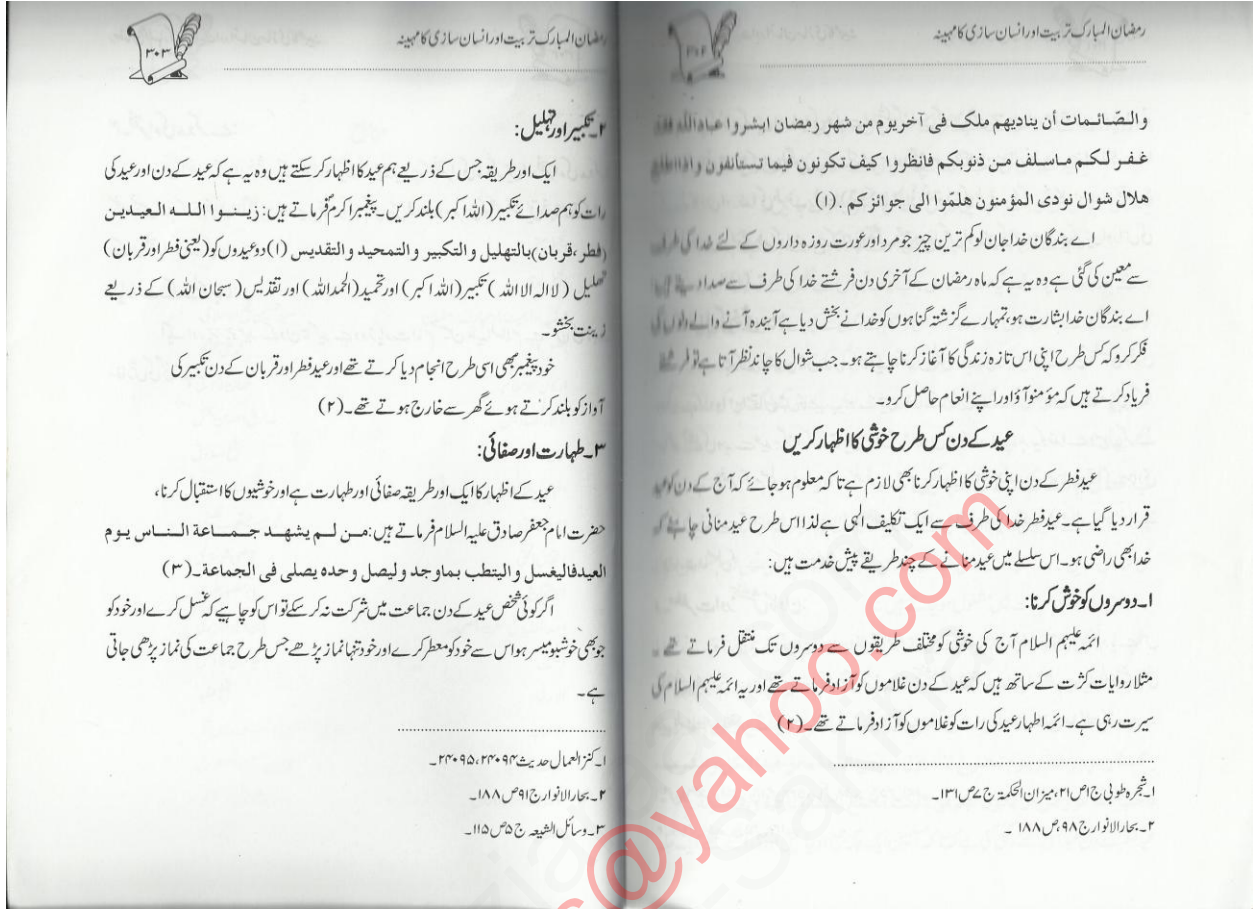 رمضان المبارک تربیت اور انسان سازی کا مہینہ
۳۰۲
والصّائمات أن ینادیهم ملک فی آخر یوم من شهر رمضان ابشروا عباد الله فقد
غفر لکم ماسلف من ذنوبکم فانظروا کیف تکونون فیما تستأنفون واذا اطلع
هلال شوال نودی المؤمنون هلمّوا الی جوائز کم . (۱)
اے بندگان خدا جان لو کم ترین چیز جو مرد اور عورت روزہ داروں کے لئے خدا کی طرف
سے معین کی گئی ہے وہ یہ ہے کہ ماہ رمضان کے آخری دن فرشتے خدا کی طرف سے صدا دیتے ہیں
اے بندگان خدا بشارت ہو، تمہارے گزشتہ گناہوں کو خدا نے بخش دیا ہے آیندہ آنے والے دنوں کی
فکر کرو کہ کس طرح اپنی اس تازہ زندگی کا آغاز کرنا چاہتے ہو۔ جب شوال کا چاند نظر آتا ہے تو فرشتے
فریاد کرتے ہیں کہ مؤمنو آؤ اور اپنے انعام حاصل کرو۔
عید کے دن کس طرح خوشی کا اظہار کریں
عید فطر کے دن اپنی خوشی کا اظہار کرنا بھی لازم ہے تاکہ معلوم ہو جائے کہ آج کے دن کو عید
قرار دیا گیا ہے۔ عید فطر خدا کی طرف سے ایک تکلیف الہی ہے لذا اس طرح عید منانی چاہئے کہ
خدا بھی راضی ہو۔ اس سلسلے میں عید منانے کے چند طریقے پیش خدمت ہیں:
۱۔ دوسروں کو خوش کرنا:
ائمہ علیہم السلام آج کی خوشی کو مختلف طریقوں سے دوسروں تک منتقل فرماتے تھے ۔
مثلا روایات کثرت کے ساتھ ہیں کہ عید کے دن غلاموں کو آزاد فرماتے تھے اور یہ ائمہ علیہم السلام کی
سیرت رہی ہے۔ ائمہ اطہار عید کی رات کو غلاموں کو آزاد فرماتے تھے۔ (۲)
۱۔ شجرہ طوبی ج۱ ص۲۱، میزان الحکمۃ ج ۷ ص ۱۳۱۔
۲۔ بحار الانوار ج ۹۸، ص ۱۸۸ ۔
رمضان المبارک تربیت اور انسان سازی کا مہینہ
۳۰۳
۲۔ تکبیر اور تہلیل:
ایک اور طریقہ جس کے ذریعے ہم عید کا اظہار کر سکتے ہیں وہ یہ ہے کہ عید کے دن اور عید کی
رات کو ہم صدائے تکبیر (اللہ اکبر) بلند کریں۔ پیغمبر اکرمؐ فرماتے ہیں: زینوا الله العیدین
(فطر، قربان) بالتهلیل و التکبیر و التمحید و التقدیس (۱) دو عیدوں کو (یعنی فطر اور قربان)
تھلیل (لا الہ الا اللہ) تکبیر (اللہ اکبر) اور تحمید (الحمد اللہ) اور تقدیس (سبحان اللہ) کے ذریعے
زینت بخشو۔
خود پیغمبر بھی اسی طرح انجام دیا کرتے تھے اور عید فطر اور قربان کے دن تکبیر کی
آواز کو بلند کرتے ہوئے گھر سے خارج ہوتے تھے۔ (۲)
۳۔ طہارت اور صفائی:
عید کے اظہار کا ایک اور طریقہ صفائی اور طہارت ہے اور خوشیوں کا استقبال کرنا،
حضرت امام جعفر صادق علیہ السلام فرماتے ہیں: من لم یشهد جماعة الناس یوم
العید فالیغسل و الیتطب بماوجد ولیصل وحده یصلی فی الجماعة۔ (۳)
اگر کوئی شخص عید کے دن جماعت میں شرکت نہ کر سکے تو اس کو چاہیے کہ غسل کرے اور خود کو
جو بھی خوشبو میسر ہو اس سے خود کو معطر کرے اور خود تنہا نماز پڑھے جس طرح جماعت کی نماز پڑھی جاتی
ہے۔
۱۔ کنز العمال حدیث ۲۴۰۹۴، ۲۴۰۹۵۔
۲۔ بحار الانوار ج ۹۱ ص ۱۸۸۔
۳۔ وسائل الشیعہ ج ۵ ص ۱۱۵۔
s@yahoo.com